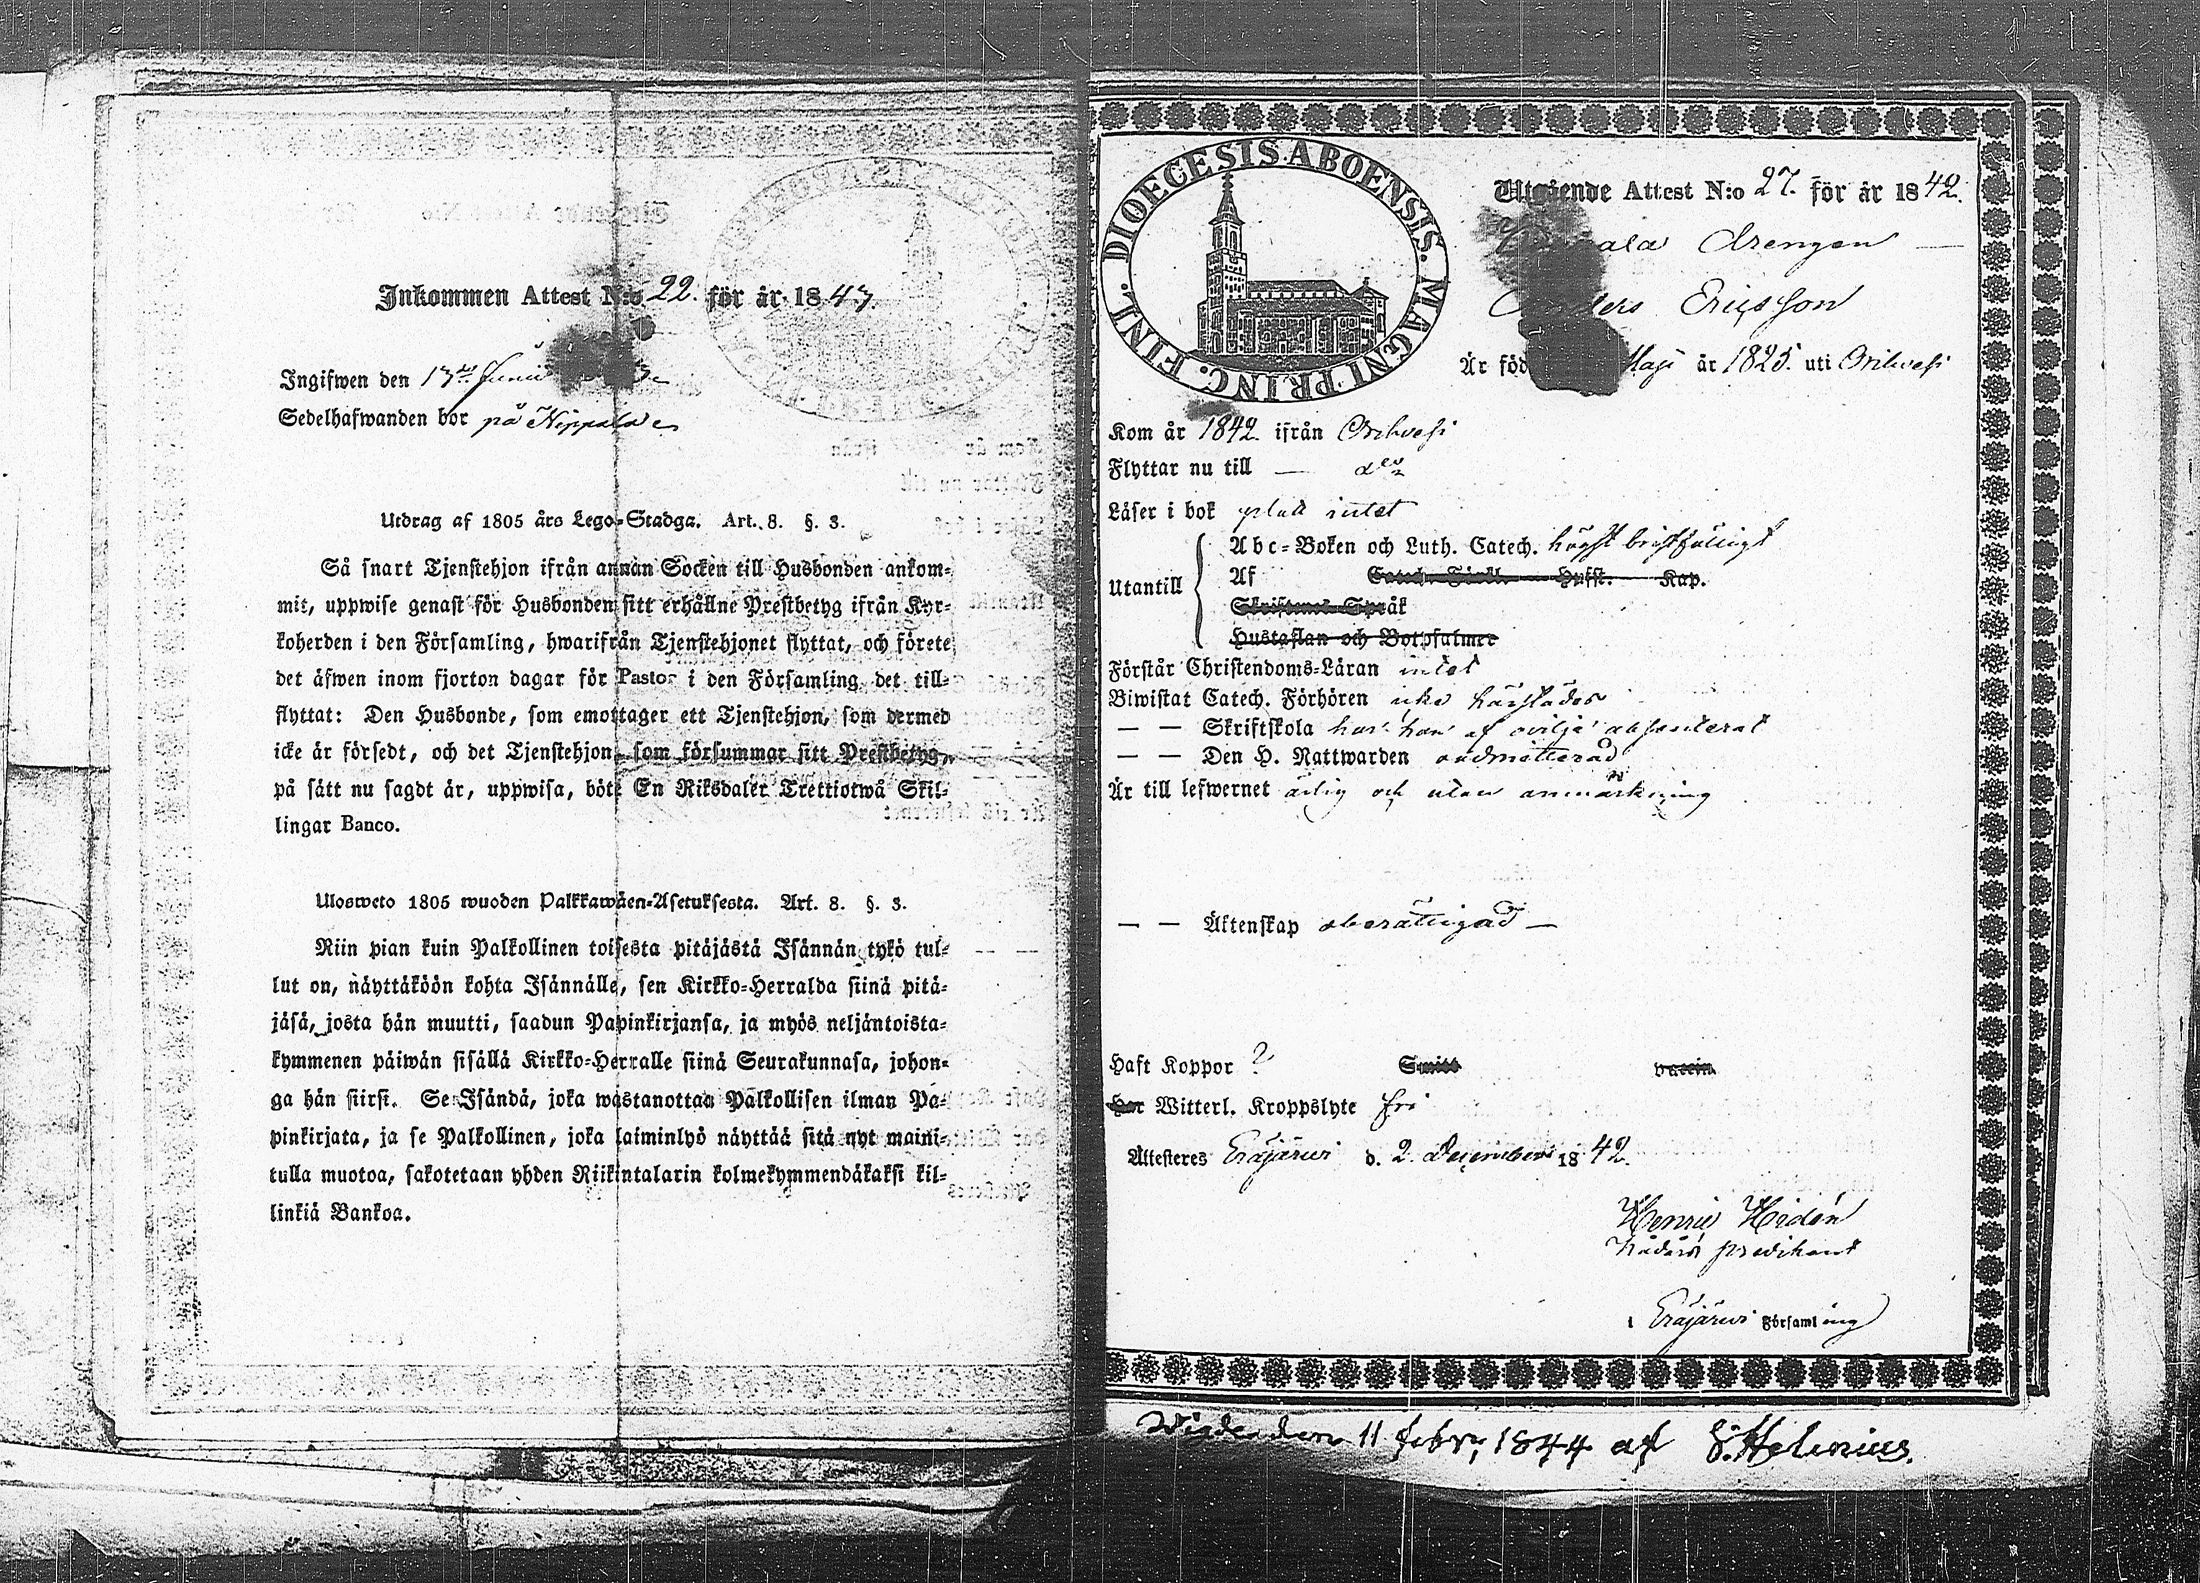 Inkommen Attest N:o 22. för år 1843.
Ingifwen den 13de Junii
Sedelhafwanden bor på Kippala
Utdrag af 1805 års Lego-Stadga. Art. 8. §. 3.
Så snart Tjenstehjon ifrån annan Socken till Husbonden ankom-
mit, uppwise genast för Husbonden sitt erhållne Prestbetyg ifrån Kyr-
koherden i den Församling, hwarifrån Tjenstehjonet flyttat, och förete
det äfwen inom fjorton dagar för Pastor i den Församling det till-
flyttat: Den Husbonde, som emottager ett Tjenstehjon, som dermed
icke är försedt, och det Tjenstehjon som försummar sitt Prestbetyg,
på sätt nu sagdt är, uppwisa, böte En Riksdaler Trettiotwå Skil-
lingar Banco.
Uloswetо 1805 wuoden Palkkawäen-Asetuksesta. Art. 8. §. 3.
Niin pian kuin Palkollinen toisesta pitäjästä Isännän tykö tul-
lut on, näyttäköön kohta Isännälle, sen Kirkko-Herralda siinä pitä-
jäsä, josta hän muutti, saadun Papinkirjansa, ja myös neljäntoista-
kymmenen päiwän sisällä Kirkko-Herralle siinä Seurakunnasa, johon-
ga hän siirsi. Se Isändä, joka wastanottaa Palkollisen ilman Pa-
pinkirjata, ja se Palkollinen, joka laiminlyö näyttää sitä nyt maini-
tulla muotoa, sakotetaan yhden Riikintalarin kolmekymmendäkaksi kil-
linkiä Bankoa.
DIOECESIS ABOENSIS. MAGNI PRINC. FINL.
Utgående Attest N:o 27. för år 1842.
Drengen
Ericsson
Är föd Maji år 1825. uti Orihvesi
Kom år 1842 ifrån Orihvesi
Flyttar nu till — do
Läser i bok platt intet
Utantill
Abc-Boken och Luth. Catech. högst bristfälligt
Af Hufst. Kap.
Skriftenes Språk
Hustaflan och Botpsalmer
Förstår Christendoms-Läran intet
Biwistat Catech. Förhören icke härstädes
— — Skriftskola har han af ovilja absenterat
— — Den H. Nattwarden oadmitterad
Är till lefwernet ärlig och utan anmärkning
— — Äktenskap oberättigad —
Haft Koppor ? Smitt vaccin.
Har Witterl. Kroppslyte fri
Attesteras Eräjärvi d. 2 December 1842.
Henric Hidén
predikant
i Eräjärvi Församling
den 11 febr, 1844 af Helenius.